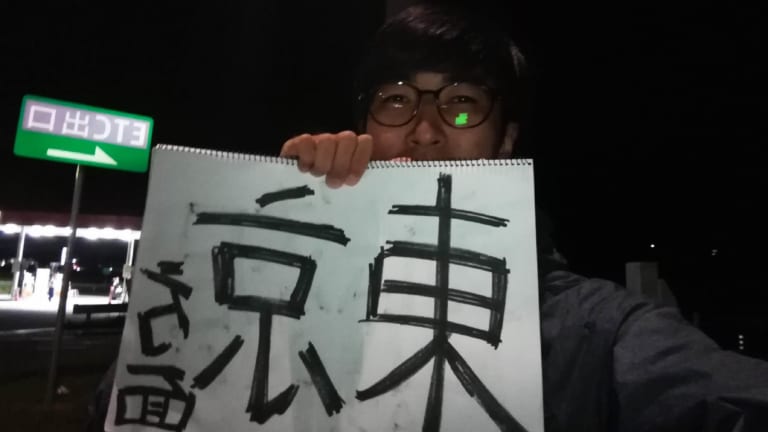 ETC出口
東京
方面